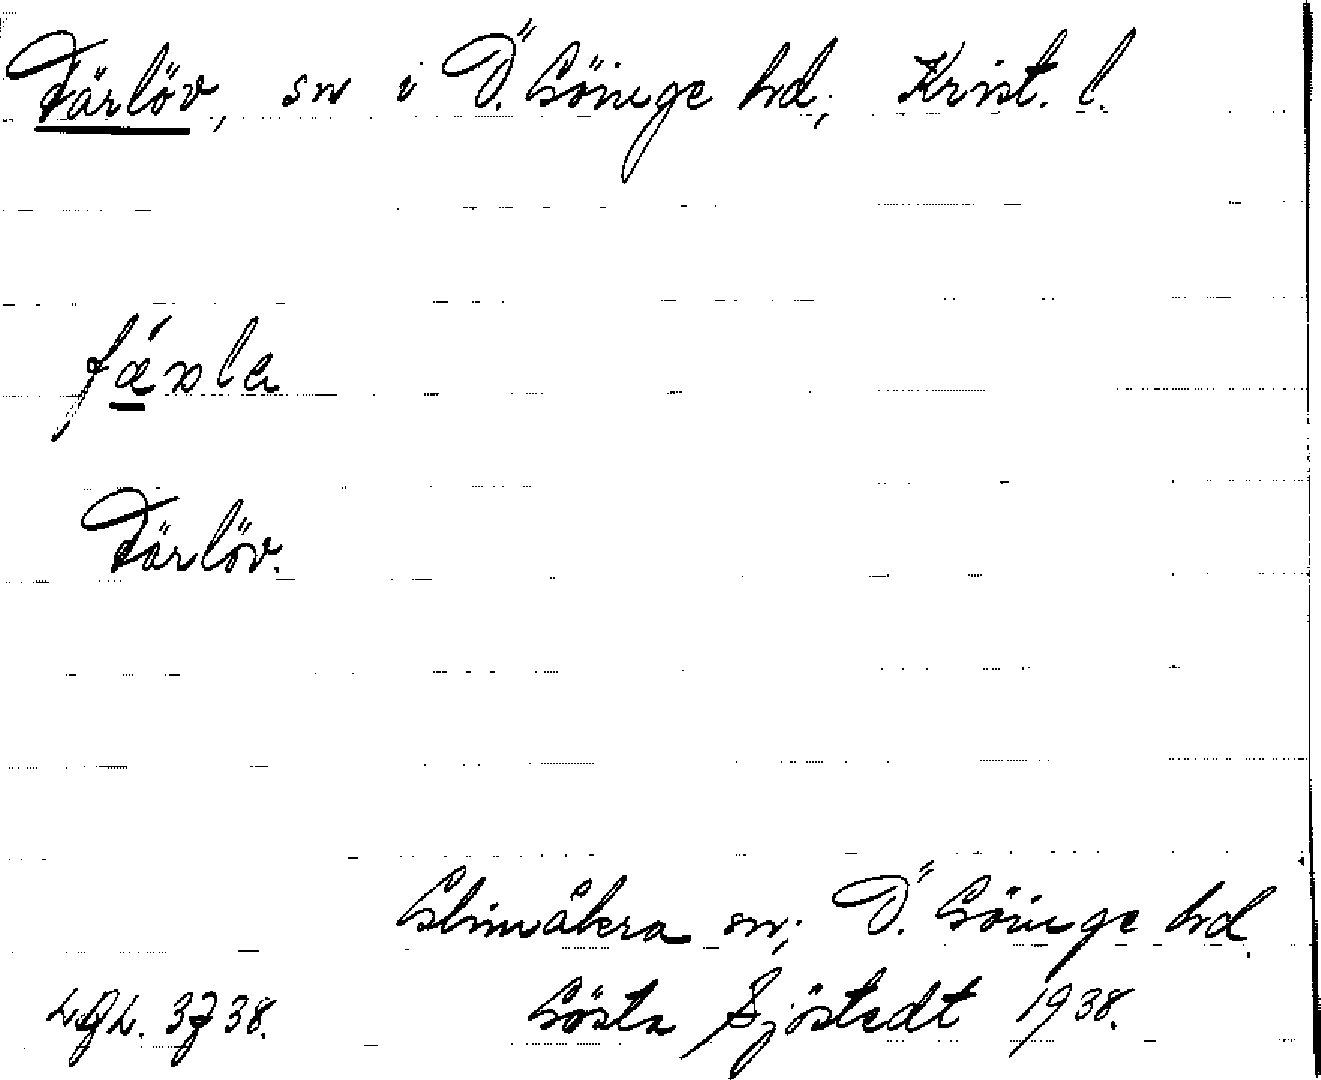 Färlöv, sn i Ö. Göinge hd, Krist. l.
fǽrla
Färlöv.
Glimåkra sn; Ö. Göinge hd
LGL. 3738. Gösta Sjöstedt 1938.